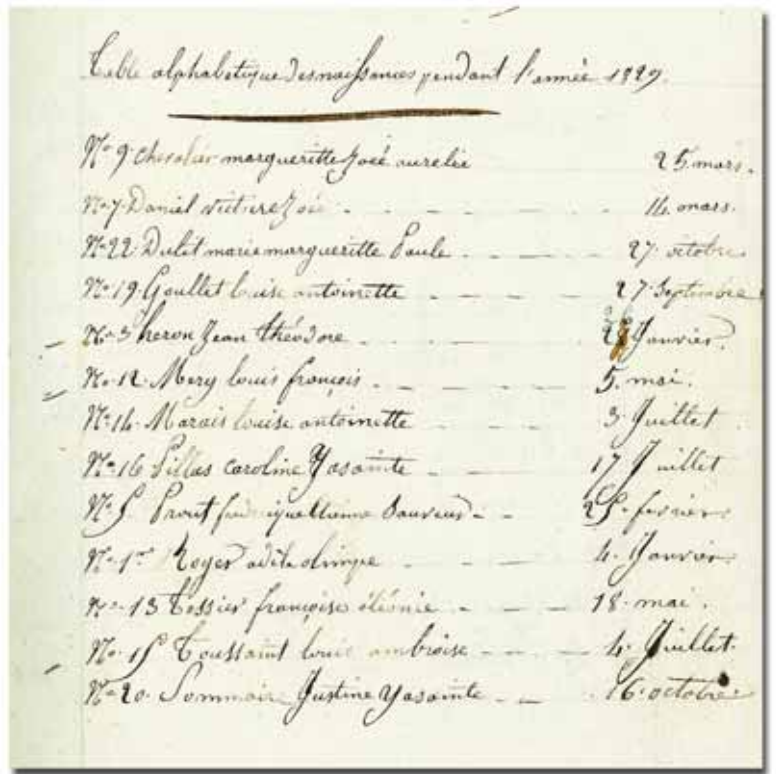 Table alphabetique des naissances pendant l'année 1829.
N° 9. chevalier margueritte Zoé aurelie 25. mars.
N° 7. Daniel Zoé 14. mars.
N° 22. Dulet marie margueritte Paule 27. octobre
N° 19. Goullet louise antoinette 27. Septembre
N° 3 heron Jean théodore Janvier.
N° 12. Mery louis françois 5. mai.
N° 14. Marais louise antoinette 3. Juillet
N° 16 Pillas caroline Yasainte 17 Juillet
N° 5. Prout 25. fevrier.
N° 1er Roger olimpe 4. Janvier.
N° 13 Tessier françoise 18. mai.
N° 15 Toussaint louis ambroise 4. Juillet.
N° 20. Sommaire Justine Yasainte 16. octobre.